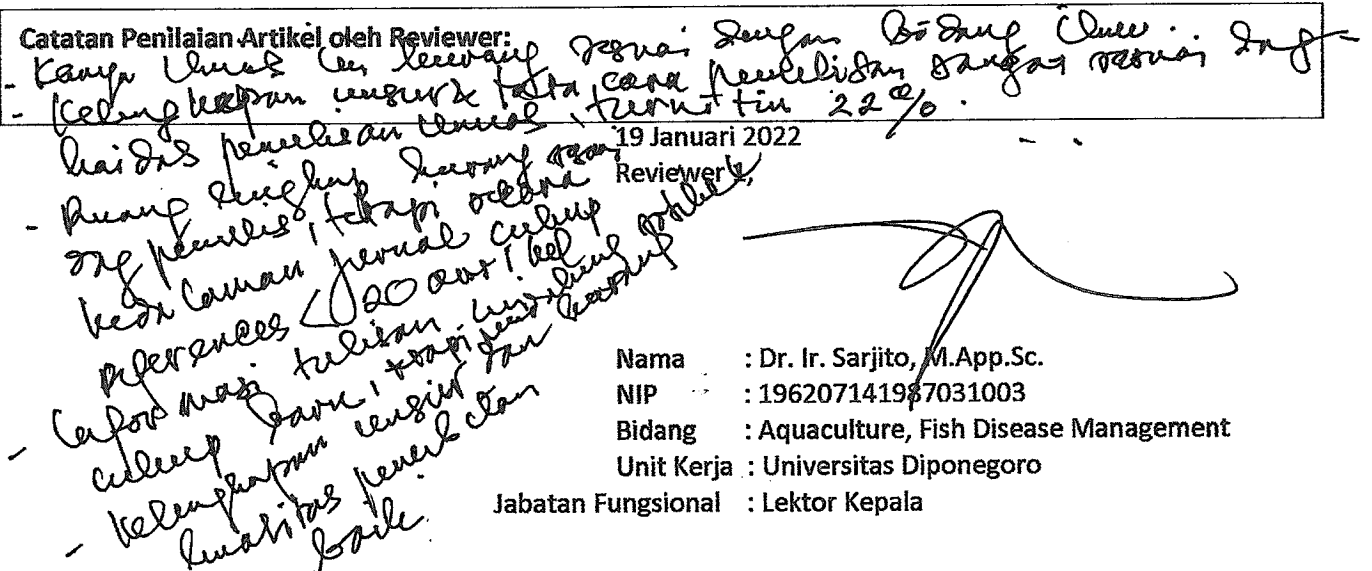 Catatan Penilaian Artikel oleh Reviewer:
- Karya Ilmiah ini kurang sesuai dengan Bidang Ilmu.
- Kelengkapan unsur & tata cara penulisan sangat sesuai dng
kaidas penulisan ilmiah, turnitin 22%.
- Ruang lingkup kurang sesuai
dng penulis, tetapi
kedalaman jurnal cukup
references < 20
- tulisan
cukup baru, tetapi
- Kelengkapan unsur dan
kualitas penerbitan
baik.
19 Januari 2022
Reviewer
Nama : Dr. Ir. Sarjito, M.App.Sc.
NIP : 196207141987031003
Bidang : Aquaculture, Fish Disease Management
Unit Kerja : Universitas Diponegoro
Jabatan Fungsional : Lektor Kepala